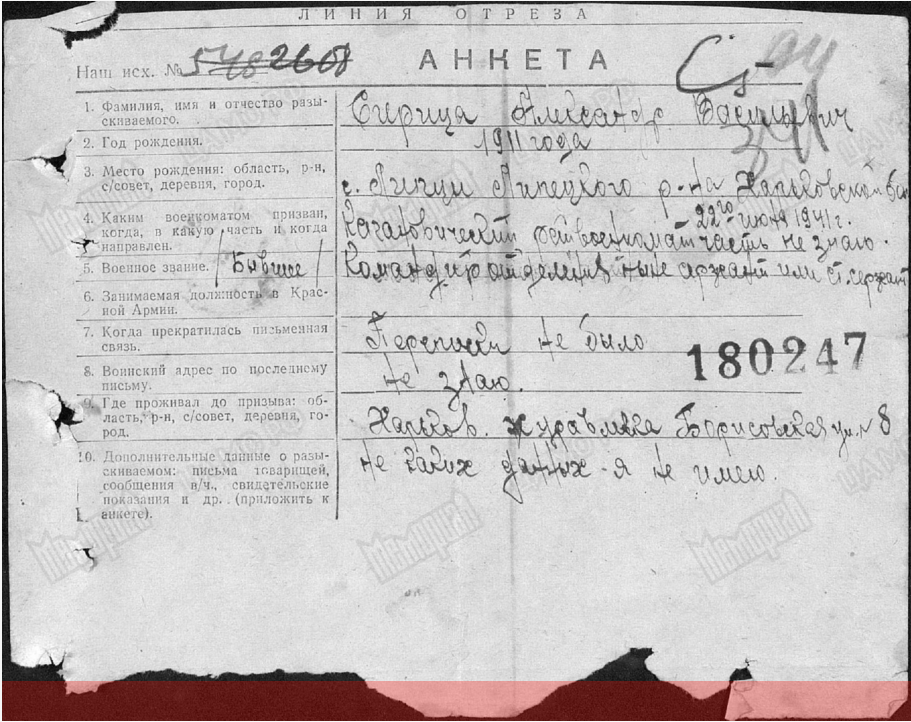 ЛИНИЯ ОТРЕЗА
АНКЕТА
Наш исх. № 548 2608
1. Фамилия, имя и отчество разы-
скиваемого.
Сирица Александр Васильевич
2. Год рождения.
1911 года
3. Место рождения: область, р-н,
с/совет, деревня, город.
с. Липцы Липецкого р-на Харьковской
4. Каким военкоматом призван,
когда, в какую часть и когда
направлен.
22го июня 1941 г.
Кагановический часть не знаю.
5. Военное звание. /Бывшее/
Командир отделения ныне сержант или ст. сержант
6. Занимаемая должность в Крас-
ной Армии.
7. Когда прекратилась письменная
связь.
Переписки не было
180247
8. Воинский адрес по последнему
письму.
не знаю.
9. Где проживал до призыва: об-
ласть, р-н, с/совет, деревня, го-
род.
Харьков. Журавлевка Борисовская ул. № 8
10. Дополнительные данные о разы-
скиваемом: письма товарищей,
сообщения в/ч., свидетельские
показания и др. (приложить к
анкете).
не каких данных я не имею.
Мемориал
ЦАМО РФ